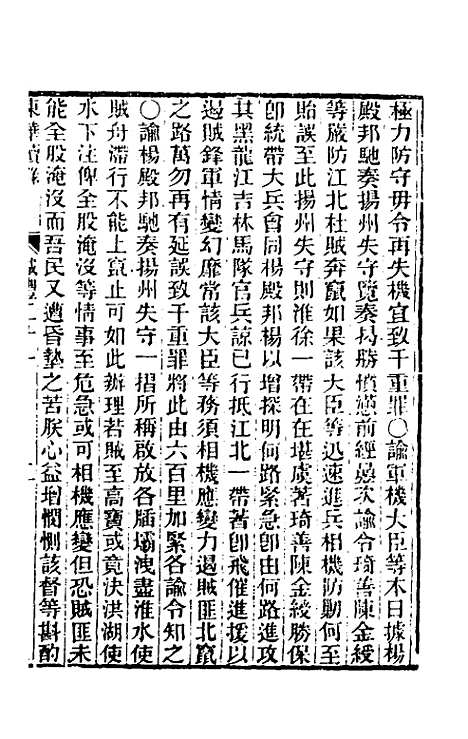 極力防守毋令再失機宜致干重罪〇諭軍機大臣等本日據楊
殿邦馳奏揚州失守覽奏曷勝憤懣前經屢次諭令琦善陳金綬
等嚴防江北杜賊奔竄如果該大臣等迅速進兵相機防勦何至
貽誤至此揚州失守則淮徐一帶在在堪虞著琦善陳金綬勝保
卽統帶大兵會同楊殿邦楊以增探明何路緊急卽由何路進攻
其黑龍江吉林馬隊官兵諒已行抵江北一帶著卽飛催進援以
遏賊鋒軍情變幻靡常該大臣等務須相機應變力遏賊匪北竄
之路萬勿再有延誤致干重罪將此由六百里加緊各諭令知之
〇諭楊殿邦馳奏揚州失守一摺所稱啟放各牐壩洩盡淮水使
賊舟滯行不能上竄止可如此辦理若賊至高寶或竟決洪湖使
水下注俾全股淹沒等情事至危急或可相機應變但恐賊匪未
能全股淹沒而吾民又遭昏墊之苦朕心益增憫惻該督等斟酌
東華續錄 咸豐二十一